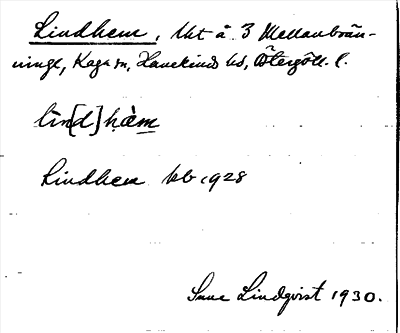 Lindhem, Uht å 3 Mellanbrän-
ninge, Kaga sn, Hanekinds hd, Östergötl. l.
lin[d]hèm
Lindhem kb 1928
Sune Lindqvist 1930.